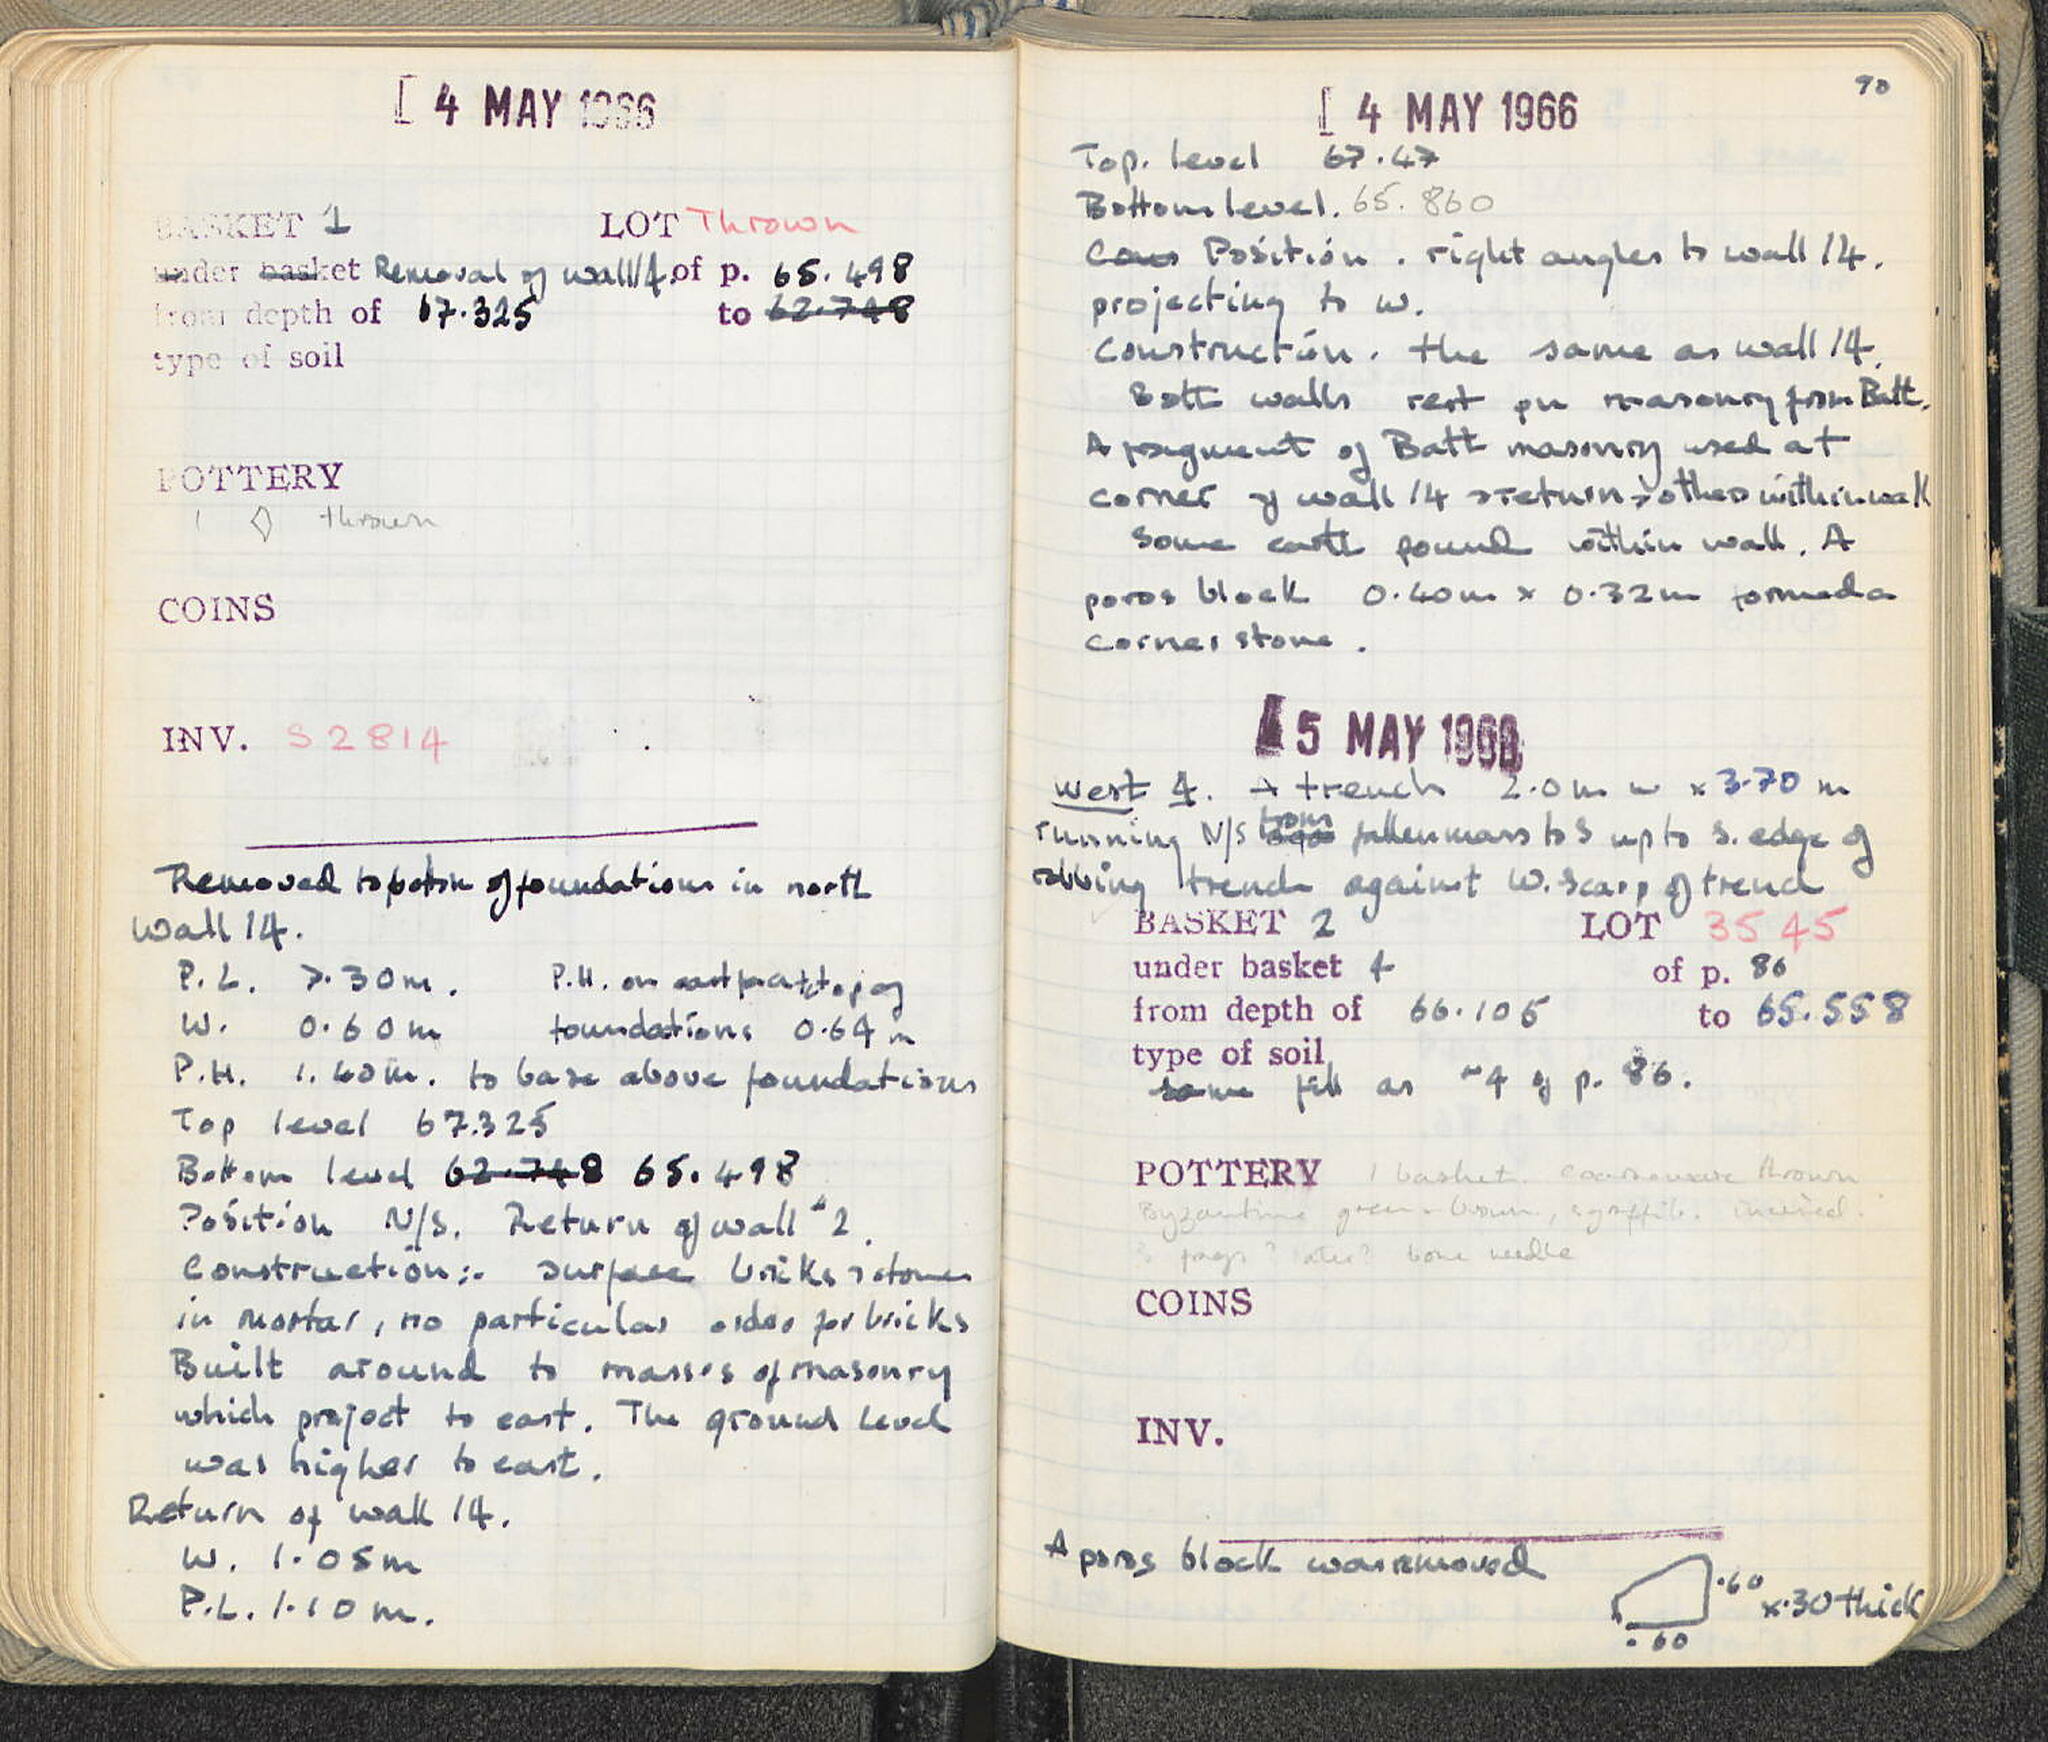 [ 4 MAY 1966
BASKET 1 LOT Thrown
under basket Removal of wall 14 of p. 65.498
from depth of 67.325 to 62.748
type of soil
POTTERY
1 thrown
COINS
INV. S 2814
Removed to bottom of foundations in north
wall 14.
P.L. 7.30m. P.H. on east face to top of
W. 0.60m foundations 0.64m
P.H. 1.40m. to base above foundations
Top level 67.325
Bottom level 62.748 65.498
Position N/S. Return of wall #2.
Construction:- surface bricks & stones
in mortar, no particular order for bricks
Built around to masses of masonry
which project to east. The ground level
was higher to east.
Return of wall 14.
W. 1.05m
P.L. 1.10m.
90
[ 4 MAY 1966
Top. level 67.47
Bottom level. 65.860
Cons Position. right angles to wall 14.
projecting to W.
Construction. the same as wall 14.
Both walls rest on masonry from Bath.
A fragment of Bath masonry used at
corner of wall 14 & return & others within wall
Some earth found within wall. A
poros block 0.40m x 0.32m formed a
corner stone.
5 MAY 1966
West 4. A trench 2.0m w x 3.70 m
running N/S from fallen mass to S up to S. edge of
robbing trench against W. scarp of trench
BASKET 2 LOT 3545
under basket 4 of p. 86
from depth of 66.105 to 65.558
type of soil
same fill as #4 of p. 86.
POTTERY 1 basket. coarseware thrown
Byzantine green-brown, sgraffito. incised.
3 frags? bone needle
COINS
INV.
A poros block was removed
.60 x .30 thick
.60